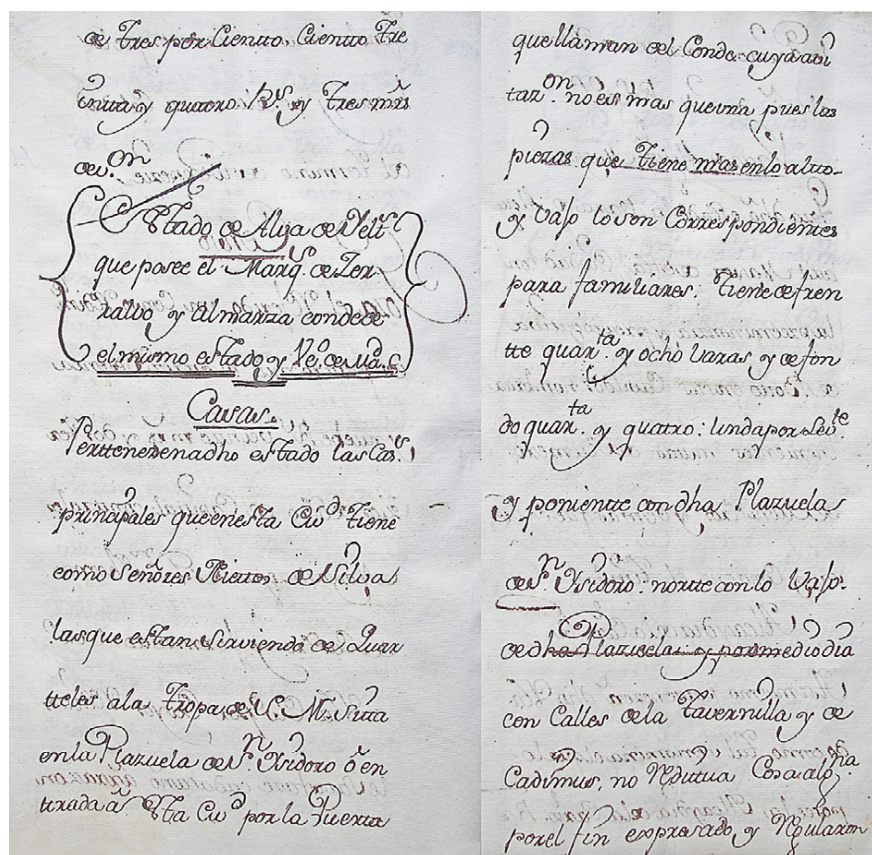 de tres por Ciento, Ciento tre
inta y quatro Rs. y tres mrs
de v.on
Estado de Alija de
que posee el Marq.s de Zer
ralvo y Almarza conde de
el mismo estado y
Casas.
Perttenezen a dho estado las Cas.s
prinzipales que en esta Ciu.d tiene
como Señores Niettos de Silva
las que estan sirviendo de Quar
tteles a la Tropa de S. M. sitta
en la Plazuela de S.n Ysidoro ô en
trada â esta Ciu.d por la Puerta
que llaman del Conde cuya avi
taz.on no es mas que vna pues las
piezas que tiene mas en lo alto
y vajo lo son Correspondientes
para familiares: tiene de fren
tte quar.ta y ocho varas y de fon
do quar.ta y quatro: linda por Lev.te
y ponientte con dha Plazuela
de S.n Ysidoro: nortte con lo vajo
de dha Plazuela y por mediodia
con Calles de la Tavernilla y de
Cadimus, no Reditua Cosa alg.na
por el fin expresado y Regularon